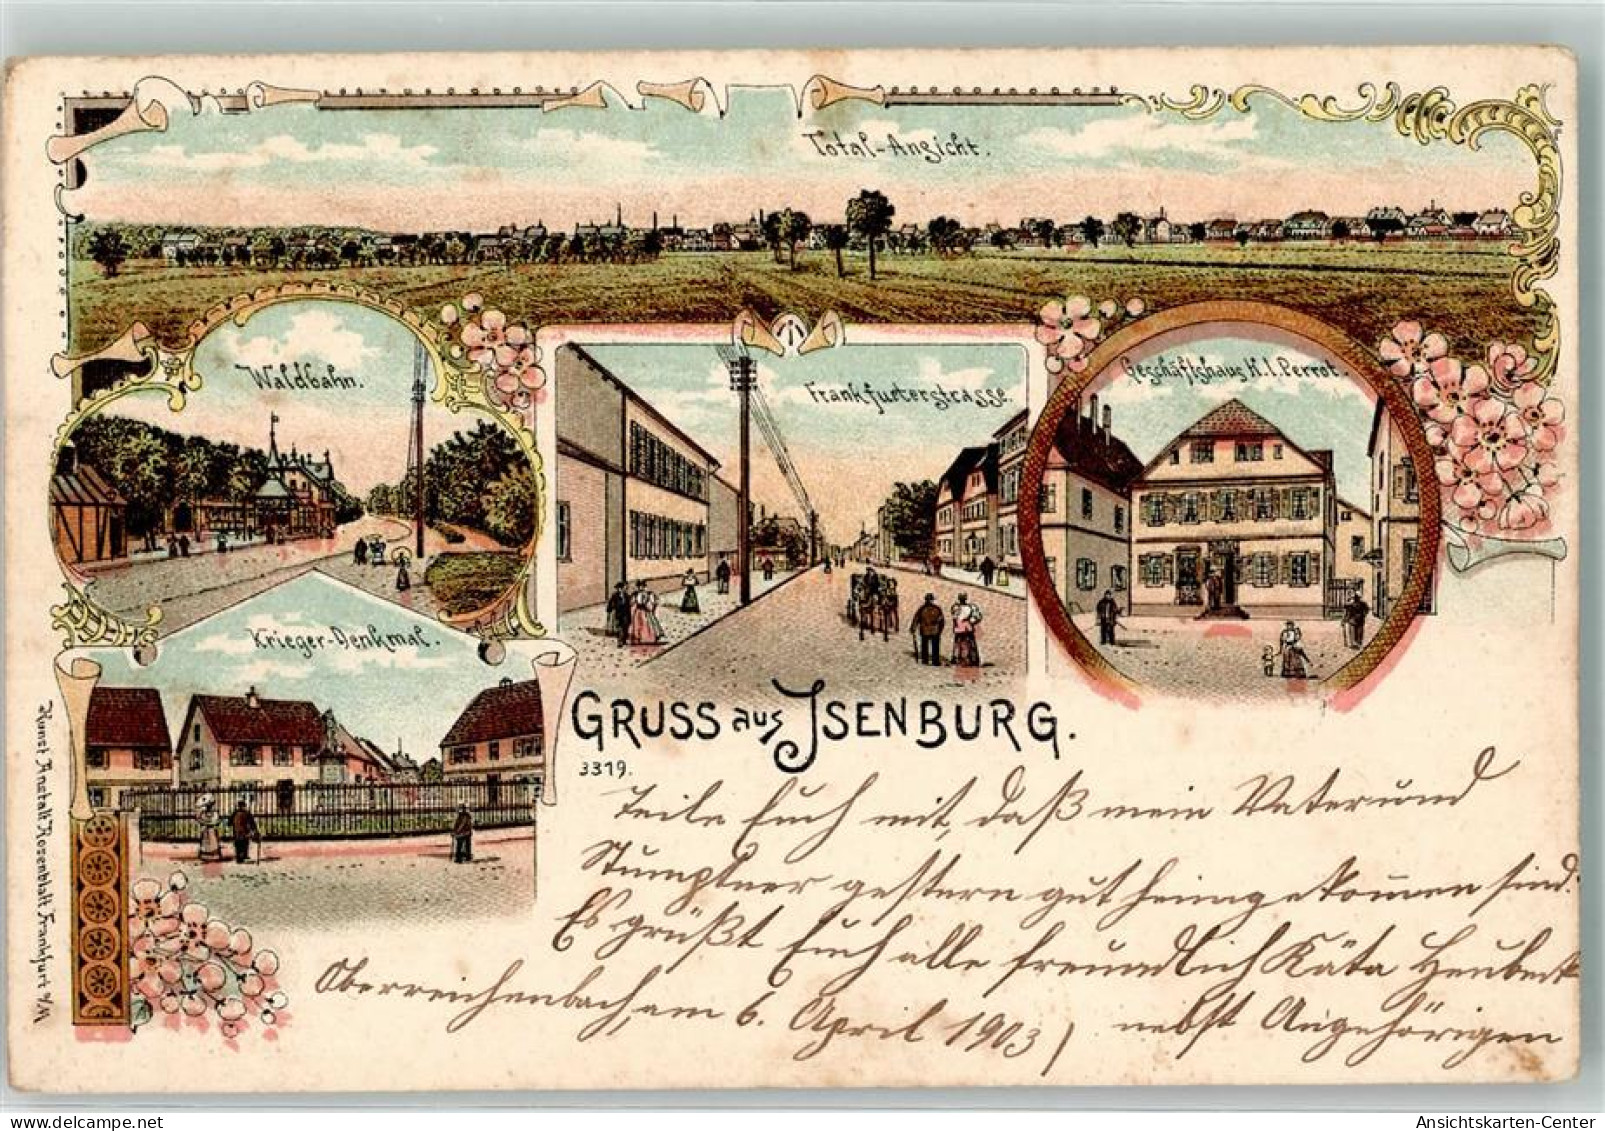 Total-Ansicht.
Waldbahn.
Frankfurterstrasse.
Geschäftshaus K. I. Perrot.
Krieger-Denkmal.
GRUSS aus ISENBURG.
3319.
Teile Euch mit, daß mein Vater und
Stumptner gestern gut heimgekommen sind.
Es grüßt Euch alle freundlich Käta Heubert
Oberreichenbach, am 6. April 1903 / nebst Angehörigen
Kunst Anstalt Rosenblatt Frankfurt a/M
delcampe.net
Ansichtskarten-Center